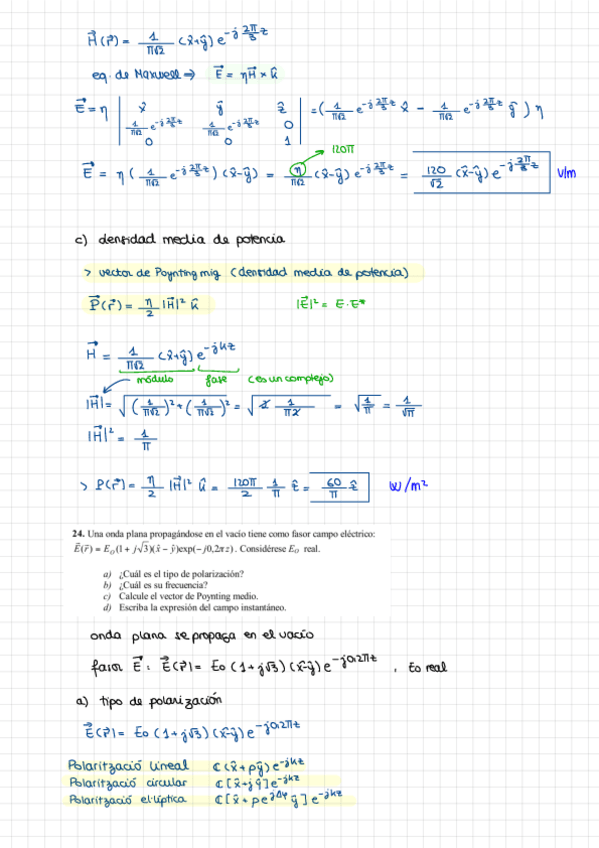 H⃗(r⃗) = 1/(π√2) (x̂+ŷ) e^(-j 2π/3 z)
eq. de Maxwell => E⃗ = ηH⃗ × k̂
E⃗ = η | x̂ ŷ ẑ ; 1/(π√2) e^(-j 2π/3 z) 1/(π√2) e^(-j 2π/3 z) 0 ; 0 0 1 | = ( 1/(π√2) e^(-j 2π/3 z) x̂ - 1/(π√2) e^(-j 2π/3 z) ŷ ) η
120π
E⃗ = η ( 1/(π√2) e^(-j 2π/3 z) ) (x̂-ŷ) = η/(π√2) (x̂-ŷ) e^(-j 2π/3 z) = 120/√2 (x̂-ŷ) e^(-j 2π/3 z) V/m
c) densidad media de potencia
> vector de Poynting mig (densidad media de potencia)
P⃗(r⃗) = η/2 |H⃗|² k̂ |E⃗|² = E·E*
H⃗ = 1/(π√2) (x̂+ŷ) e^(-jkz)
módulo fase (es un complejo)
|H⃗| = √( (1/(π√2))² + (1/(π√2))² ) = √( 2 1/(π2) ) = √(1/π) = 1/√π
|H⃗|² = 1/π
> P(r⃗) = η/2 |H⃗|² k̂ = 120π/2 1/π ẑ = 60/π ẑ W/m²
24. Una onda plana propagándose en el vacío tiene como fasor campo eléctrico:
E⃗(r⃗) = E_O(1 + j√3)(x̂ − ŷ)exp(−j0,2πz). Considérese E_O real.
a) ¿Cuál es el tipo de polarización?
b) ¿Cuál es su frecuencia?
c) Calcule el vector de Poynting medio.
d) Escriba la expresión del campo instantáneo.
onda plana se propaga en el vacío
fasor E⃗ : E⃗(r⃗) = Eo (1+j√3) (x̂-ŷ) e^(-j0,2πz) , Eo real
a) tipo de polarización
E⃗(r⃗) = Eo (1+j√3) (x̂-ŷ) e^(-j0,2πz)
Polarització lineal C(x̂+pŷ) e^(-jkz)
Polarització circular C[x̂+jŷ] e^(-jkz)
Polarització el·líptica C[x̂+p e^(jΔφ) ŷ] e^(-jkz)